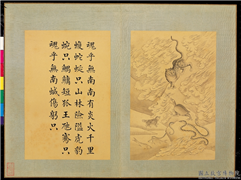 魂乎無南南有炎火千里
蝮蛇蜒只山林險隘虎豹
蜿只鰅鱅短狐王虺騫只
魂乎無南蜮傷躬只
國立故宮博物院